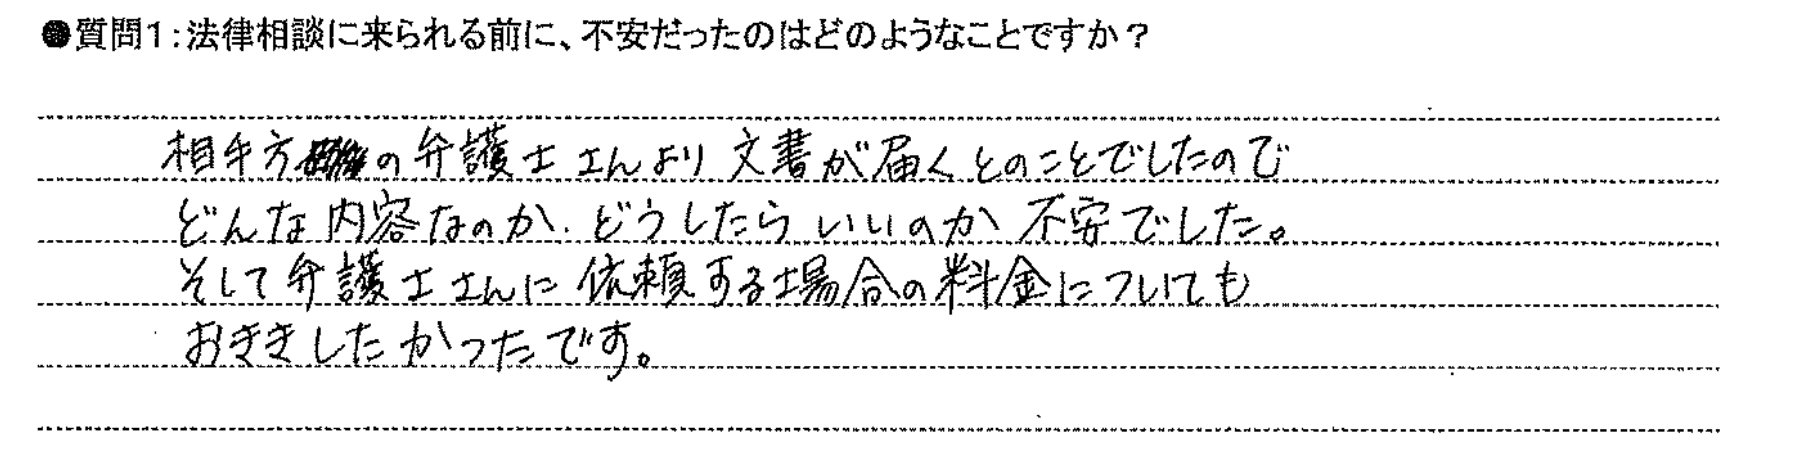 ●質問1:法律相談に来られる前に、不安だったのはどのようなことですか？
相手方の弁護士さんより文書が届くとのことでしたので
どんな内容なのか、どうしたらいいのか不安でした。
そして弁護士さんに依頼する場合の料金についても
おききしたかったです。